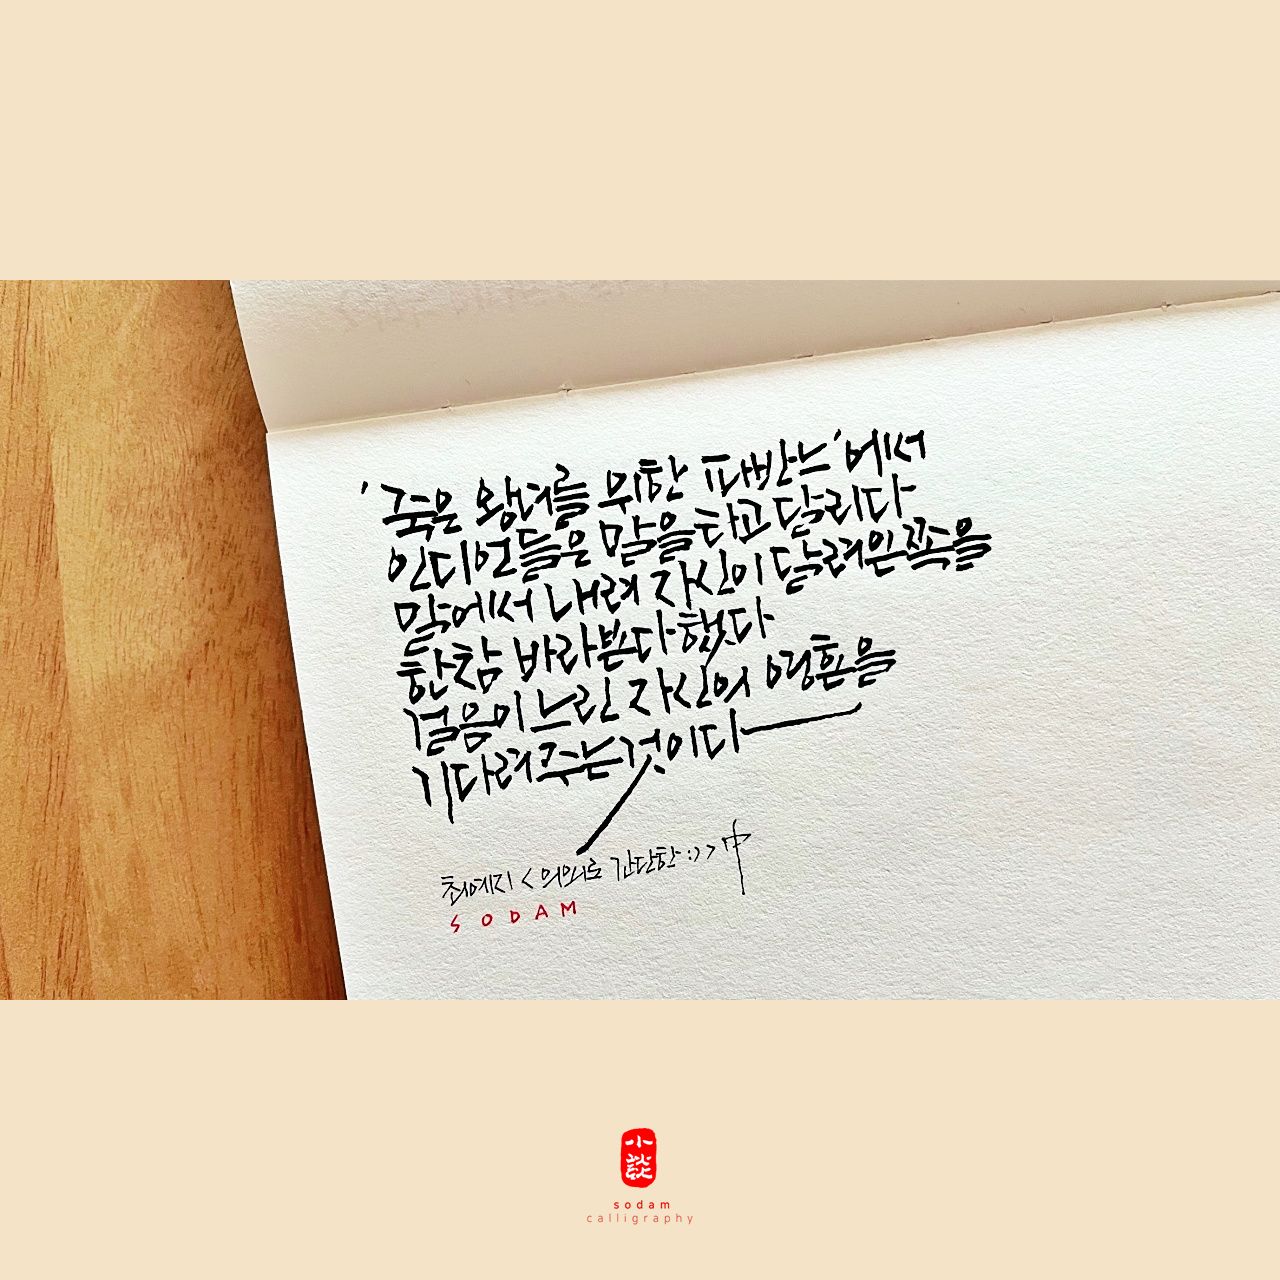 '죽은 왕녀를 위한 파반느'에서
인디언들은 말을 타고 달리다
말에서 내려 자신이 달려왔던 쪽을
한참 바라본다 했다
걸음이 느린 자신의 영혼을
기다려주는 것이다
최예지 < 의외로 간단한 :) > 中
SODAM
小談
sodam
calligraphy